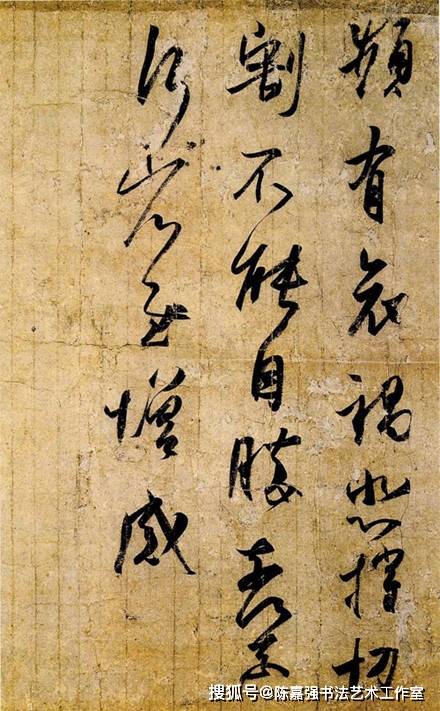 頻有哀禍悲摧切
割不能自勝奈何奈
何省慰增感
搜狐号@陈嘉强书法艺术工作室